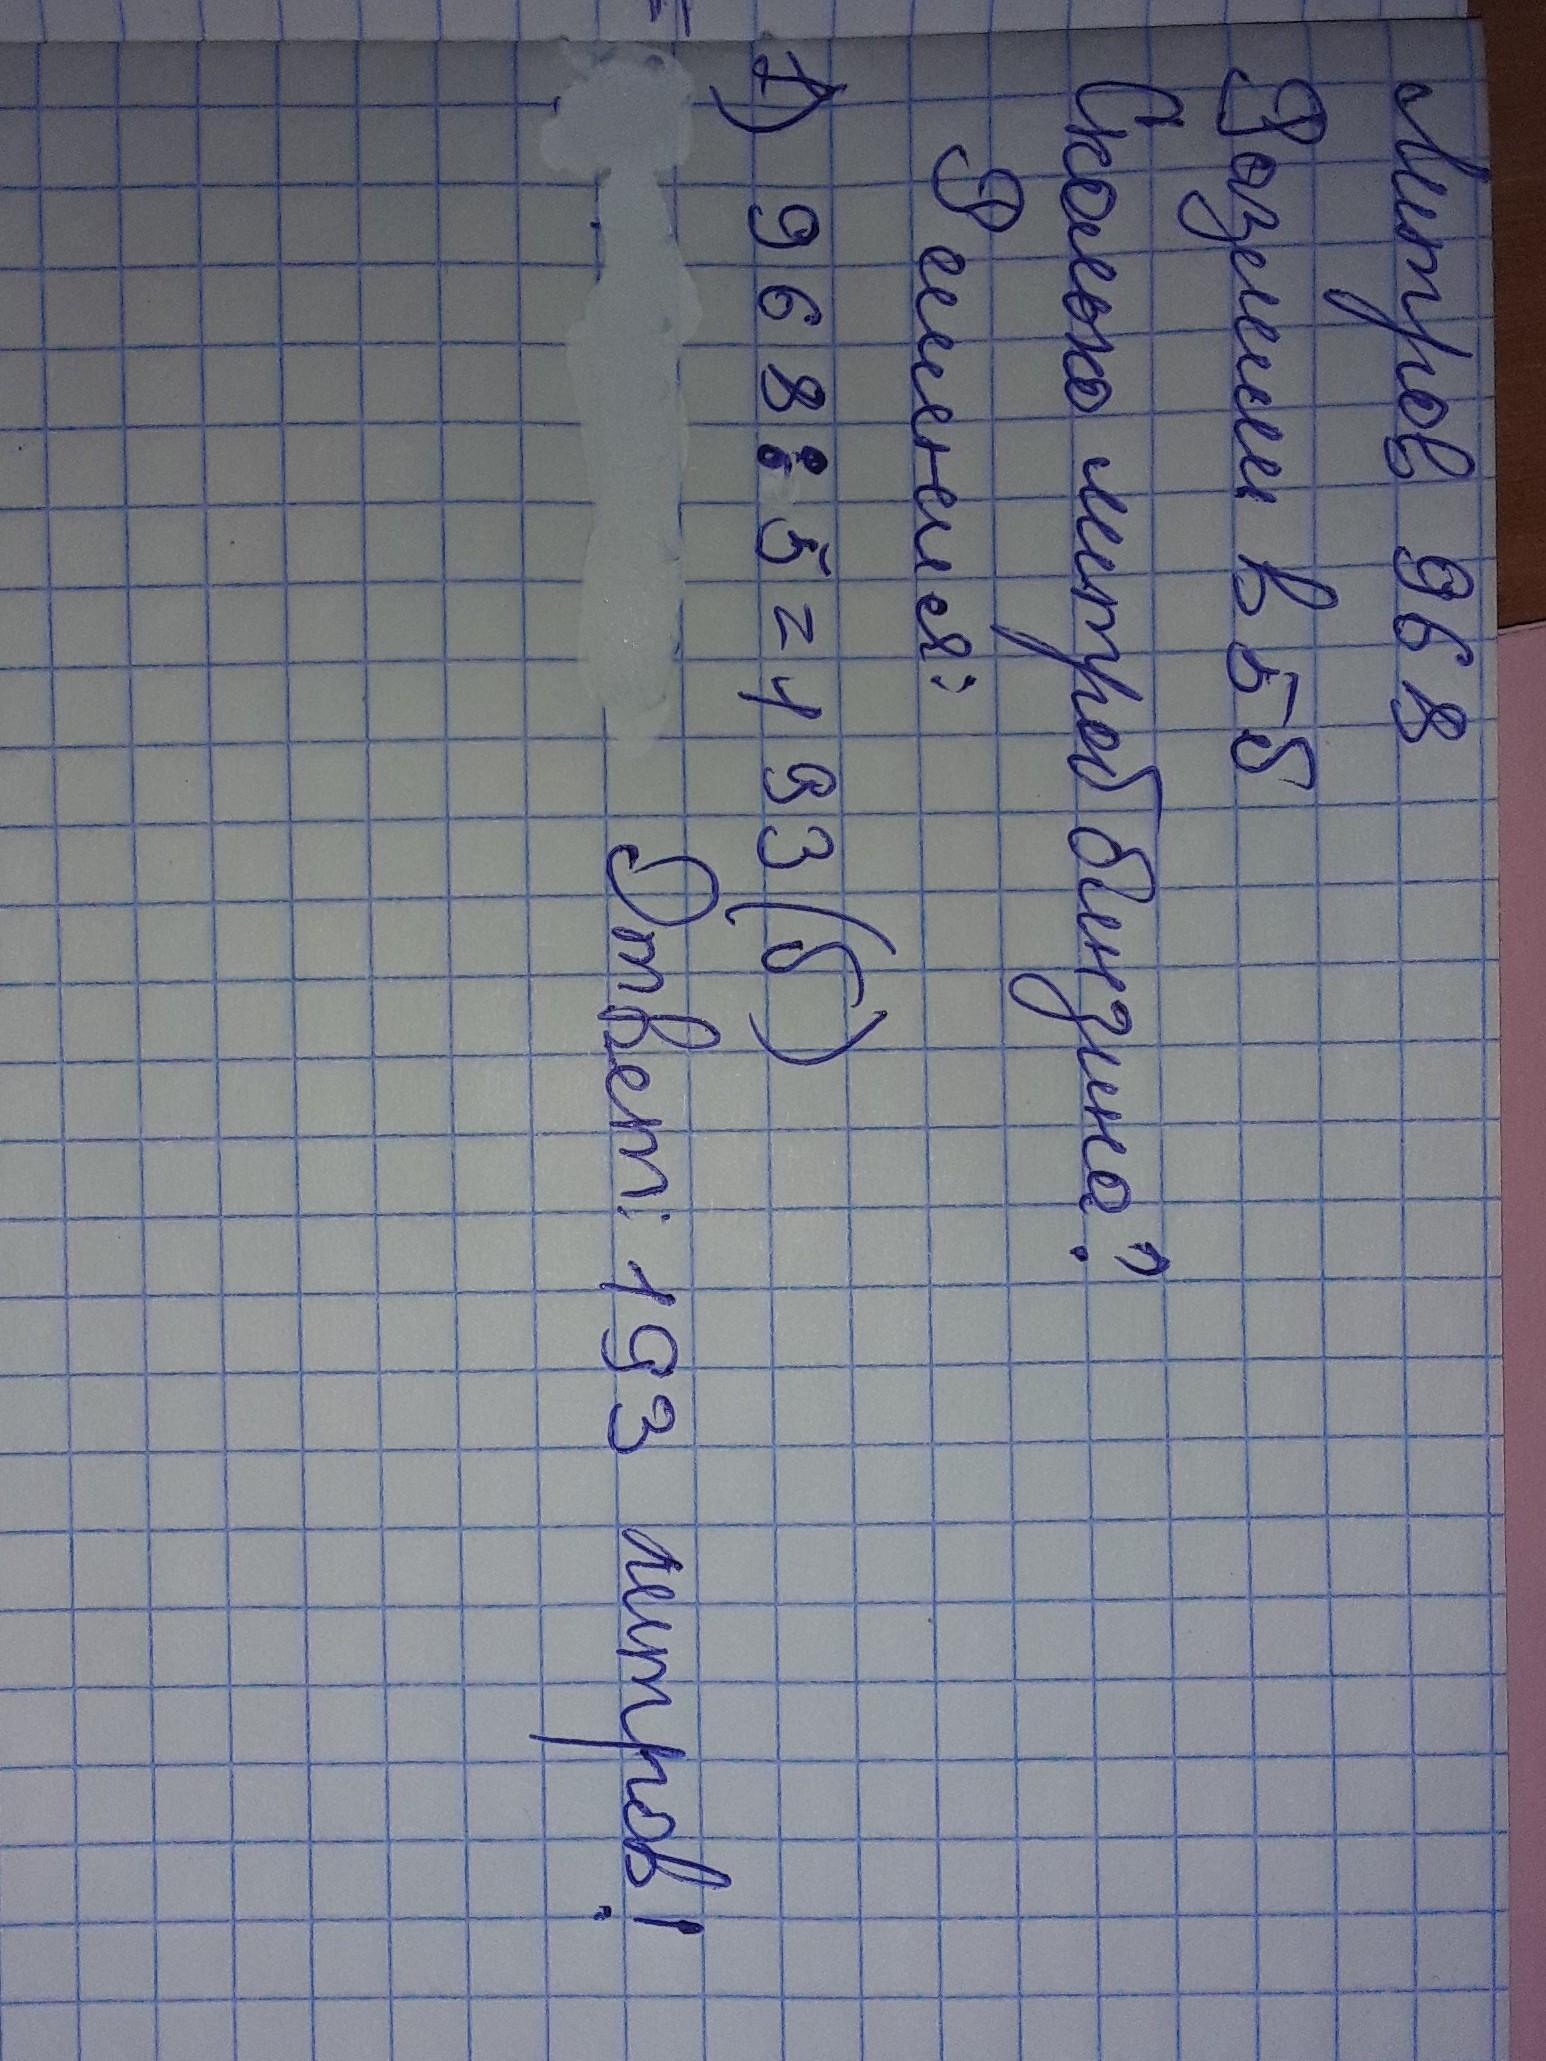 Литров 968
Розлили в 5 б
Сколько литров бензина?
Решения:
1) 968:5=193(б)
Ответ: 193 литров!